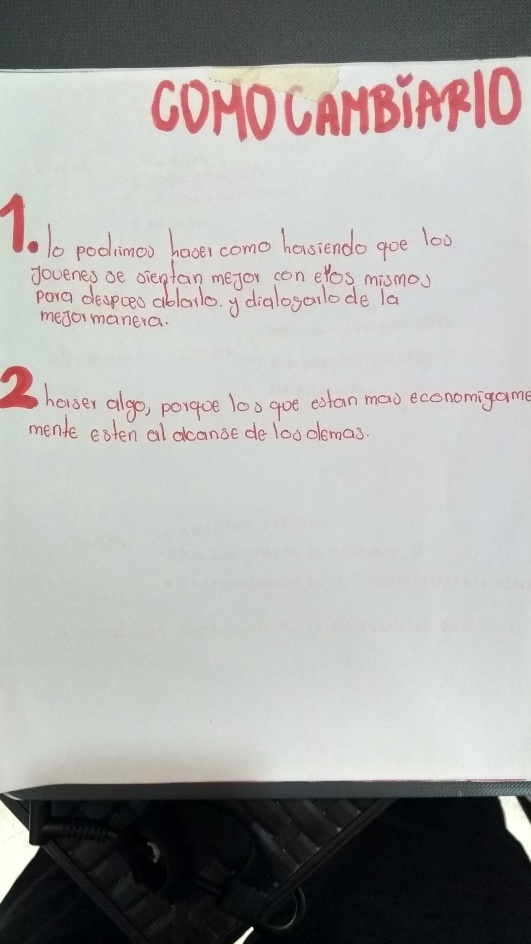 COMO CAMBIARIO
1. lo podrimos haser como haisiendo que los
Jovenes se sientan mejor con ellos mismos
para despces ablarlo. y dialogarlo de la
mejor manera.
2 haiser algo, porque los que estan mas economigame
mente esten al alcanse de los demas.